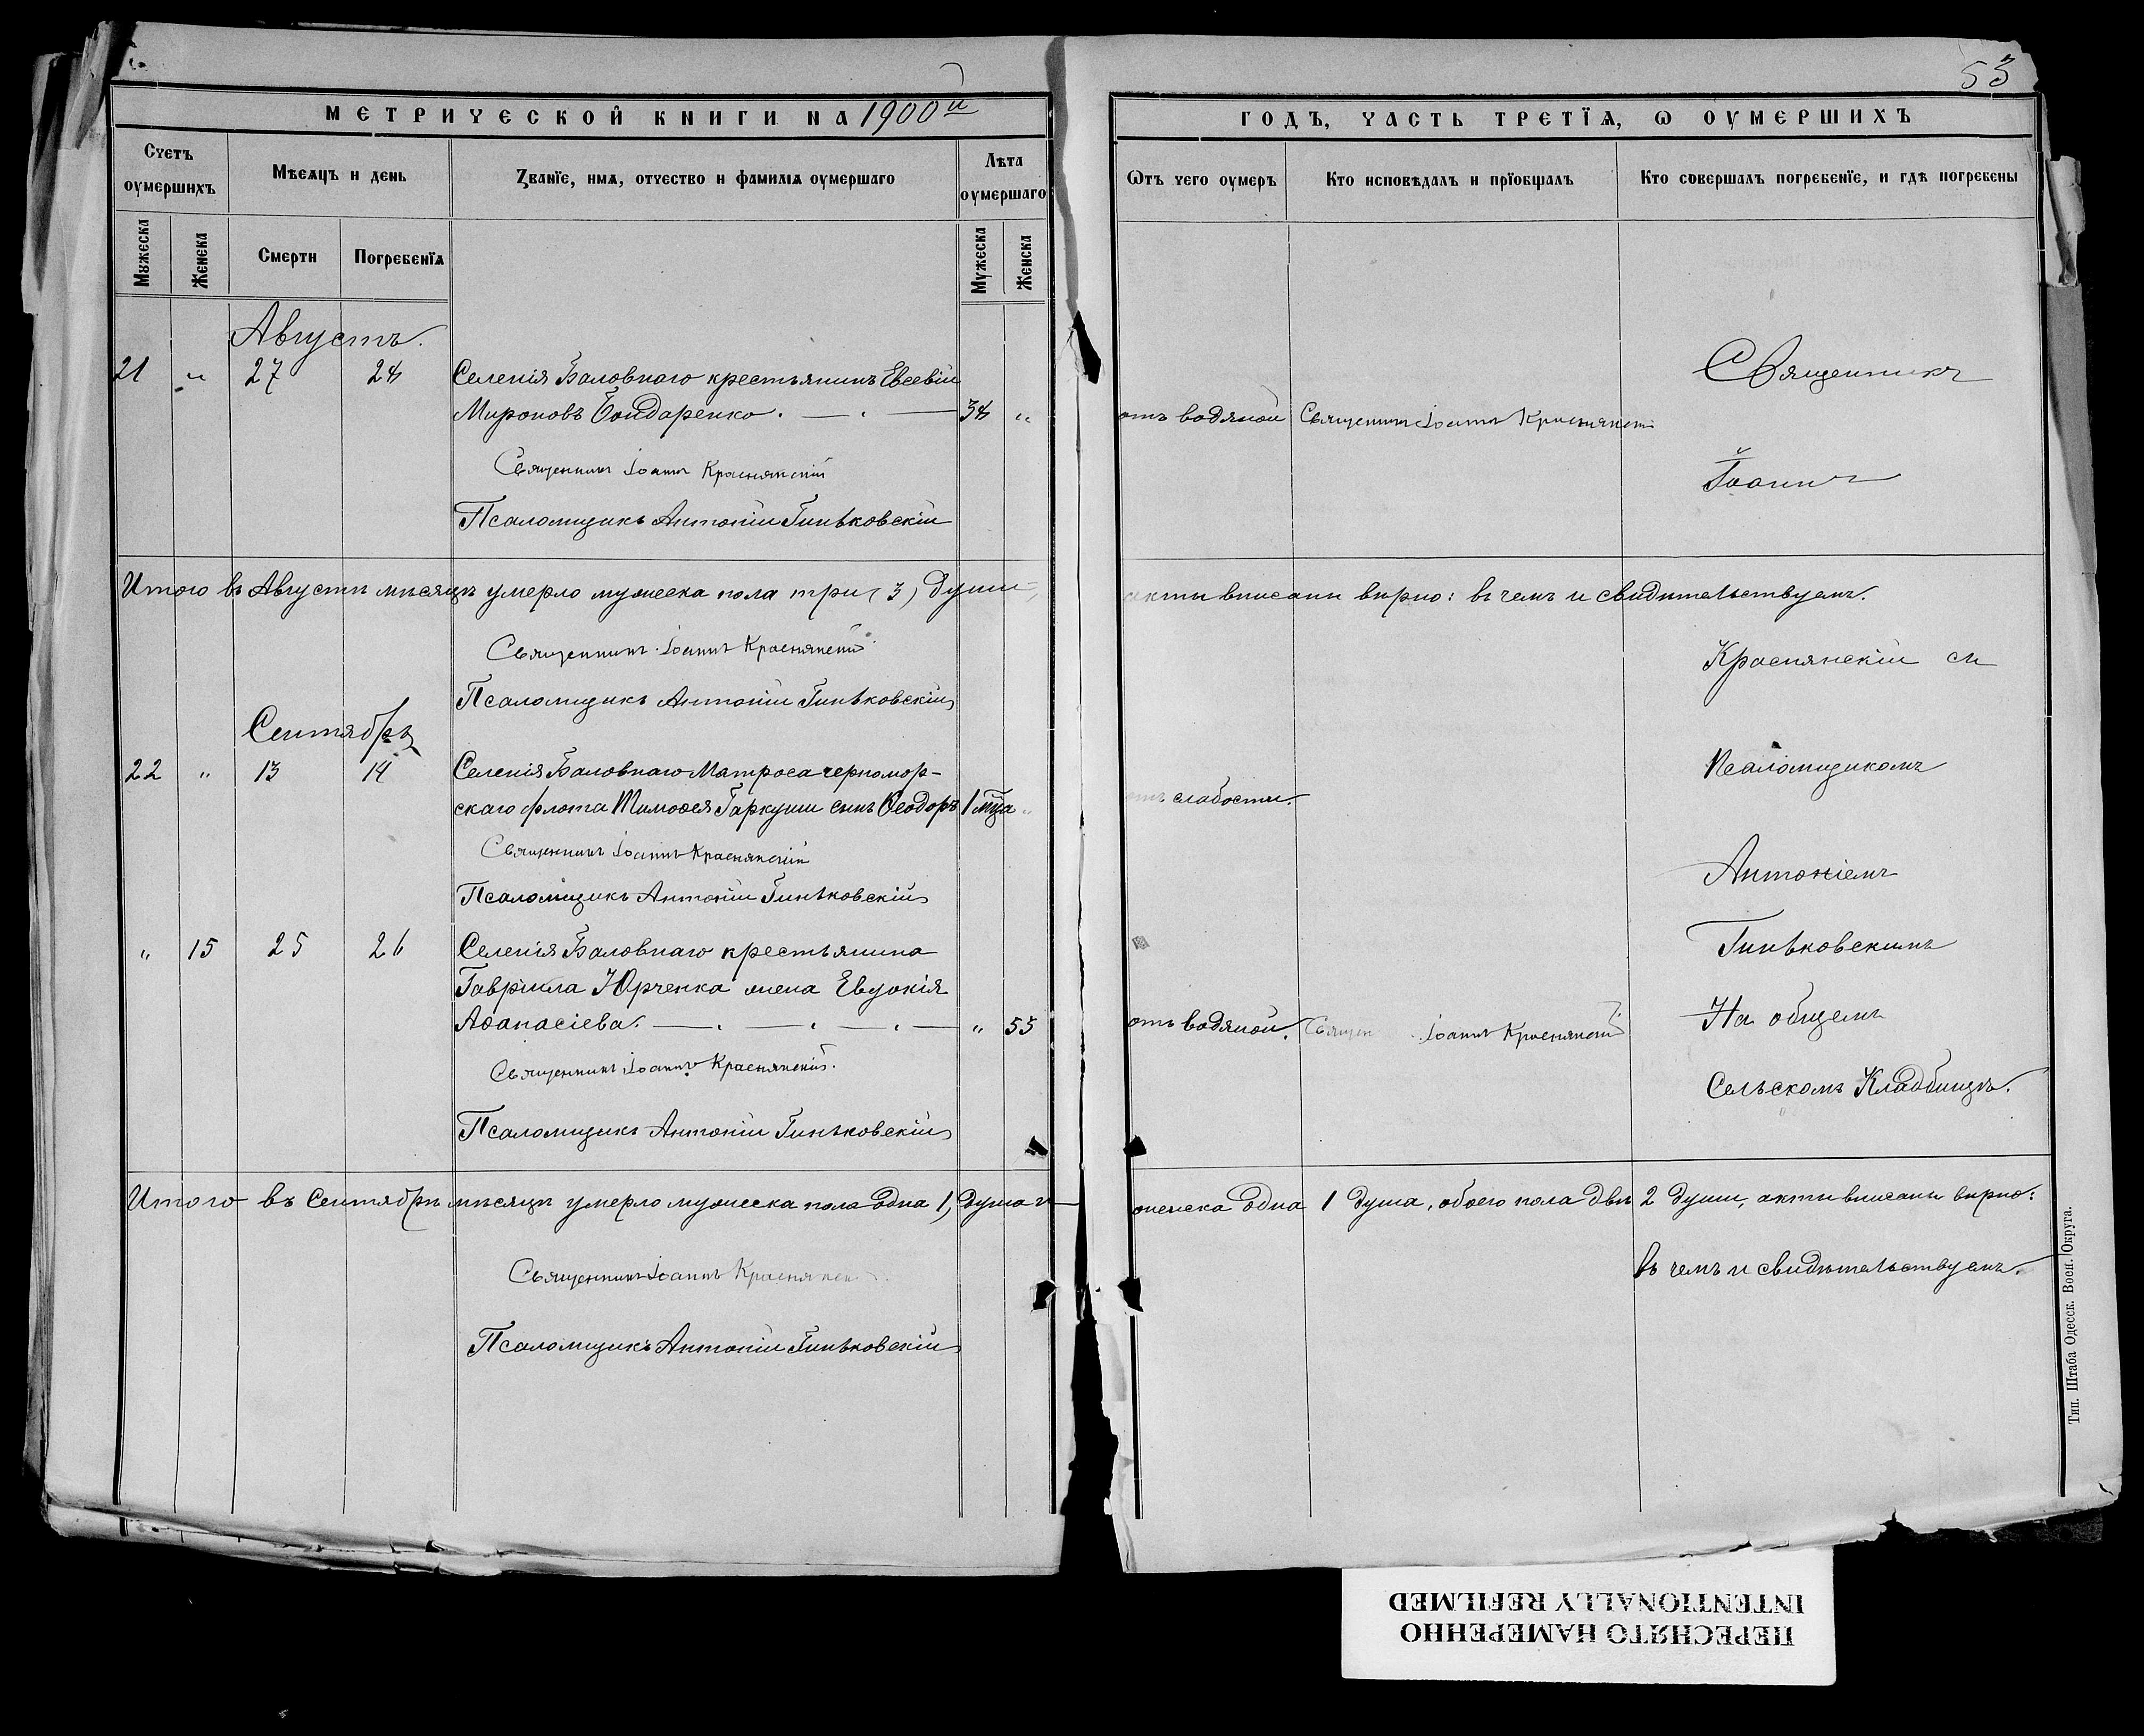 53
МЕТРИЧЕСКОЙ КНИГИ НА 1900й
ГОДЪ, ЧАСТЬ ТРЕТЇѦ, Ѡ ОУМЕРШИХЪ
Счетъ оумершихъ
Мѣсяцъ и день
Званїе, имѧ, отчество и фамилїѧ оумершаго
Лѣта оумершаго
Ѿтъ чего оумеръ
Кто исповѣдалъ и прїобщалъ
Кто совершалъ погребенїе, и гдѣ погребены
Мужеска
Женска
Смерти
Погребенїѧ
Мужеска
Женска
Августъ.
21 " 27 28 Селенія Баловнаго крестьянинъ Евсевій
Мироновъ Бондаренко. 38 " отъ водяной Священникъ Іоаннъ Краснянскій
Священникъ Іоаннъ Краснянскій
Псаломщикъ Антоній Гиньковскій
Священникъ
Іоаннъ
Итого въ Августѣ мѣсяцѣ умерло мужеска пола три (3) души, акты вписаны вѣрно: въ чемъ и свидѣтельствуемъ.
Священникъ Іоаннъ Краснянскій
Псаломщикъ Антоній Гиньковскій
Краснянскій съ
Сентябрь
22 " 13 14 Селенія Баловнаго Матроса черномор-
скаго флота Тимоѳея Гаркуши сынъ Ѳеодоръ 1 мца " отъ слабости.
Священникъ Іоаннъ Краснянскій
Псаломщикъ Антоній Гиньковскій
Псаломщикомъ
Антоніемъ
" 15 25 26 Селенія Баловнаго крестьянина
Гавріила Юрченка жена Евдокія
Аѳанасіева. " 55 отъ водяной. Священ Іоаннъ Краснянскій
Священникъ Іоаннъ Краснянскій.
Псаломщикъ Антоній Гиньковскій
Гиньковскимъ
На общемъ
Сельскомъ Кладбищѣ.
Итого въ Сентябрѣ мѣсяцѣ умерло мужеска пола одна 1, душа и женска одна 1 душа, обоего пола двѣ 2 души, акты вписаны вѣрно:
въ чемъ и свидѣтельствуемъ.
Священникъ Іоаннъ Краснянск
Псаломщикъ Антоній Гиньковскій
Тип. Штаба Одесск. Воен. Округа.
ПЕРЕСНЯТО НАМЕРЕННО
INTENTIONALLY REFILMED